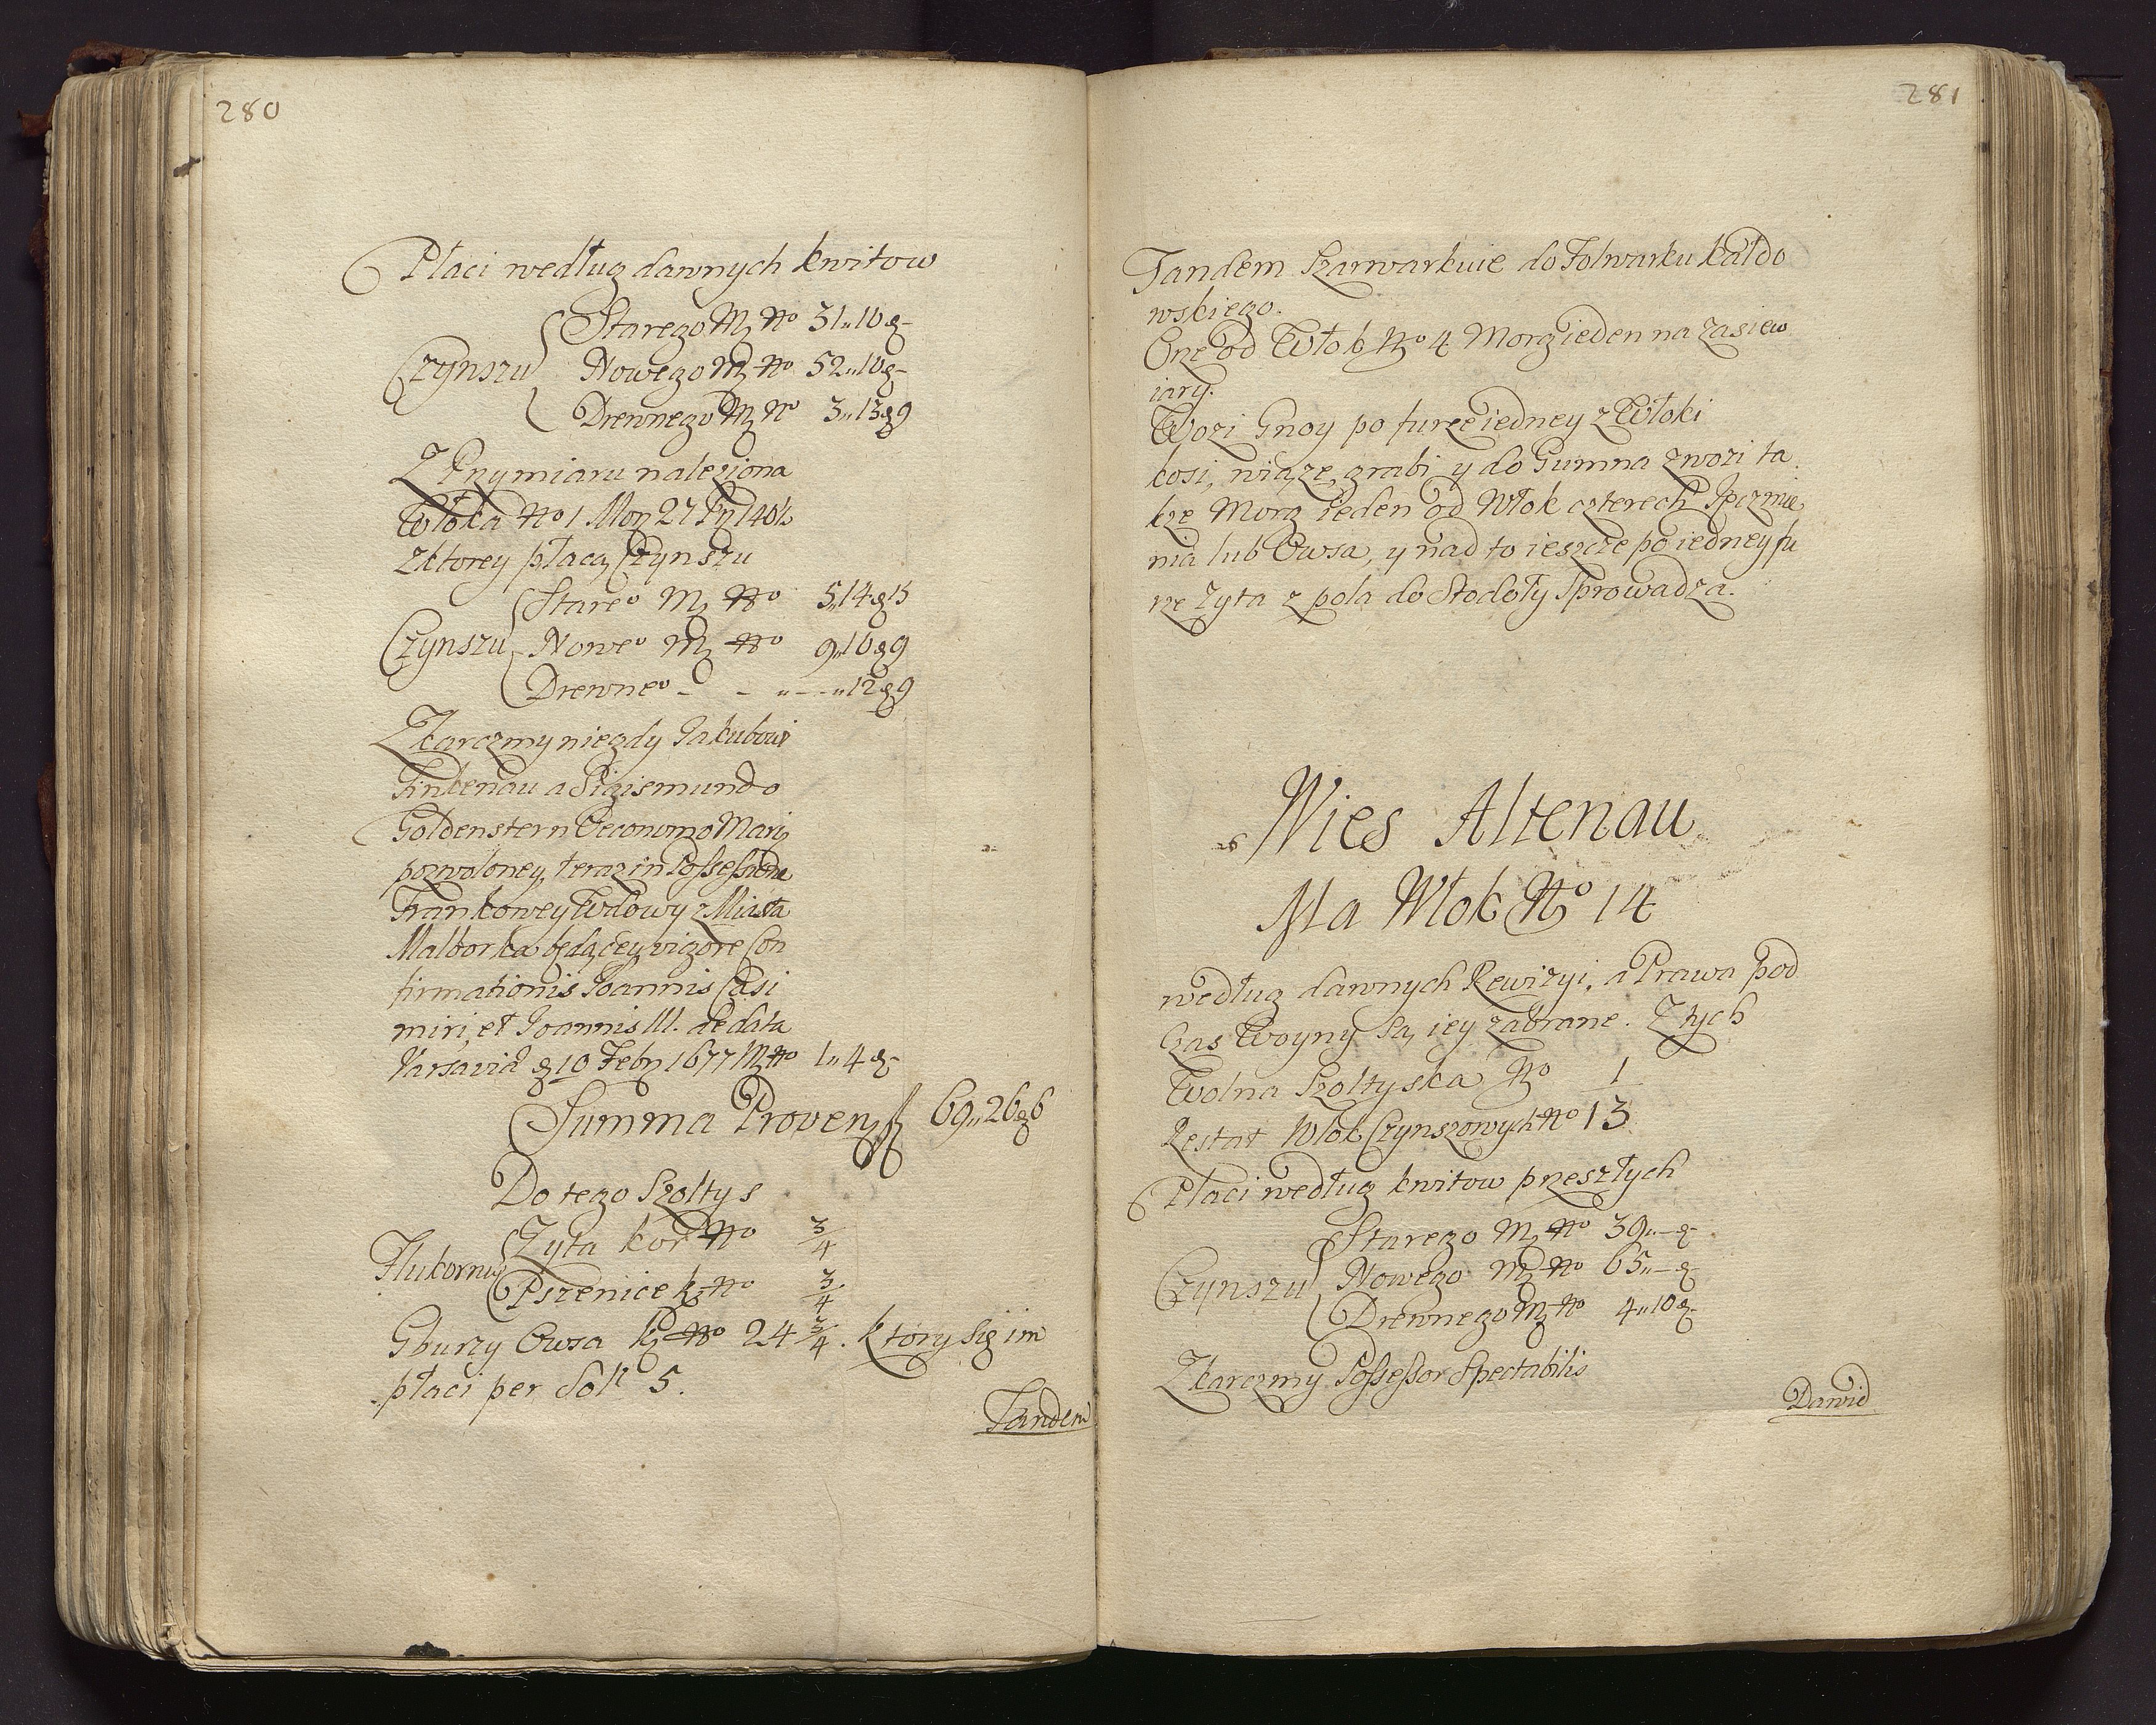 280
Płaci według dawnych kwitow
Starego M. No 31„10 g-
Czynszu Nowego M. No 52„10 g-
Drewnego M. No 3„13 g 9
Z Przymiaru należiona
Włoka No 1 Mor 27 Prę 140½
z ktorey płacą Czynszu
Stareo M. No 5„14 g 15
Czynszu Noweo M. No 9„16 g 9
Drewneo - - „ - - „12 g 9
Z karczmy niegdy Jakubowi
Finkenau a Sigismundo
Goldenstern Oeconomo Marij
pozwoloney, teraz in Possessione
Frankowey Wdowy z Miasta
Malborka będącey, vigore Con
firmationis Joannis Casi
miri, et Joannis III. de data
Varsaviæ 10 Febr 1677 M. No 1„4 g-
Summa Proven fl 69„26 g 6
Do tego Szołtys
Hukornu Zyta kor No 3/4
Pszenice k. No 3/4
Gburzy Owsa k. No 24 3/4. ktory się im
płaci per Solt 5.
Tandem
281
Tandem Szarwarkuie do Folwarku Kałdo
wskiego.
Orze od Włok No 4 Morg ieden na zasiew
iary.
Wozi Gnoy po furze iedney z Włoki
kosi, wiąże, grabi y do Gumna zwozi ta
kze Morg ieden od Włok czterech Jęczmie
nia lub Owsa, y nad to ieszcze po iedney fu
rze Zyta z pola do Stodoły Sprowadza.
Wies Altenau
Ma Włok No 14
według dawnych Rewizyi, a Prawa pod
Czas Woyny są iey zabrane. Z tych
Wolna Szołtyska No 1
Restat Włok Czynszowych No 13
Płaci według kwitow przeszłych
Starego M. No 39„- g
Czynszu Nowego M. No 65„- g
Drewnego M. No 4„10 g-
Z karczmy Possessor Spectabilis
Dawid